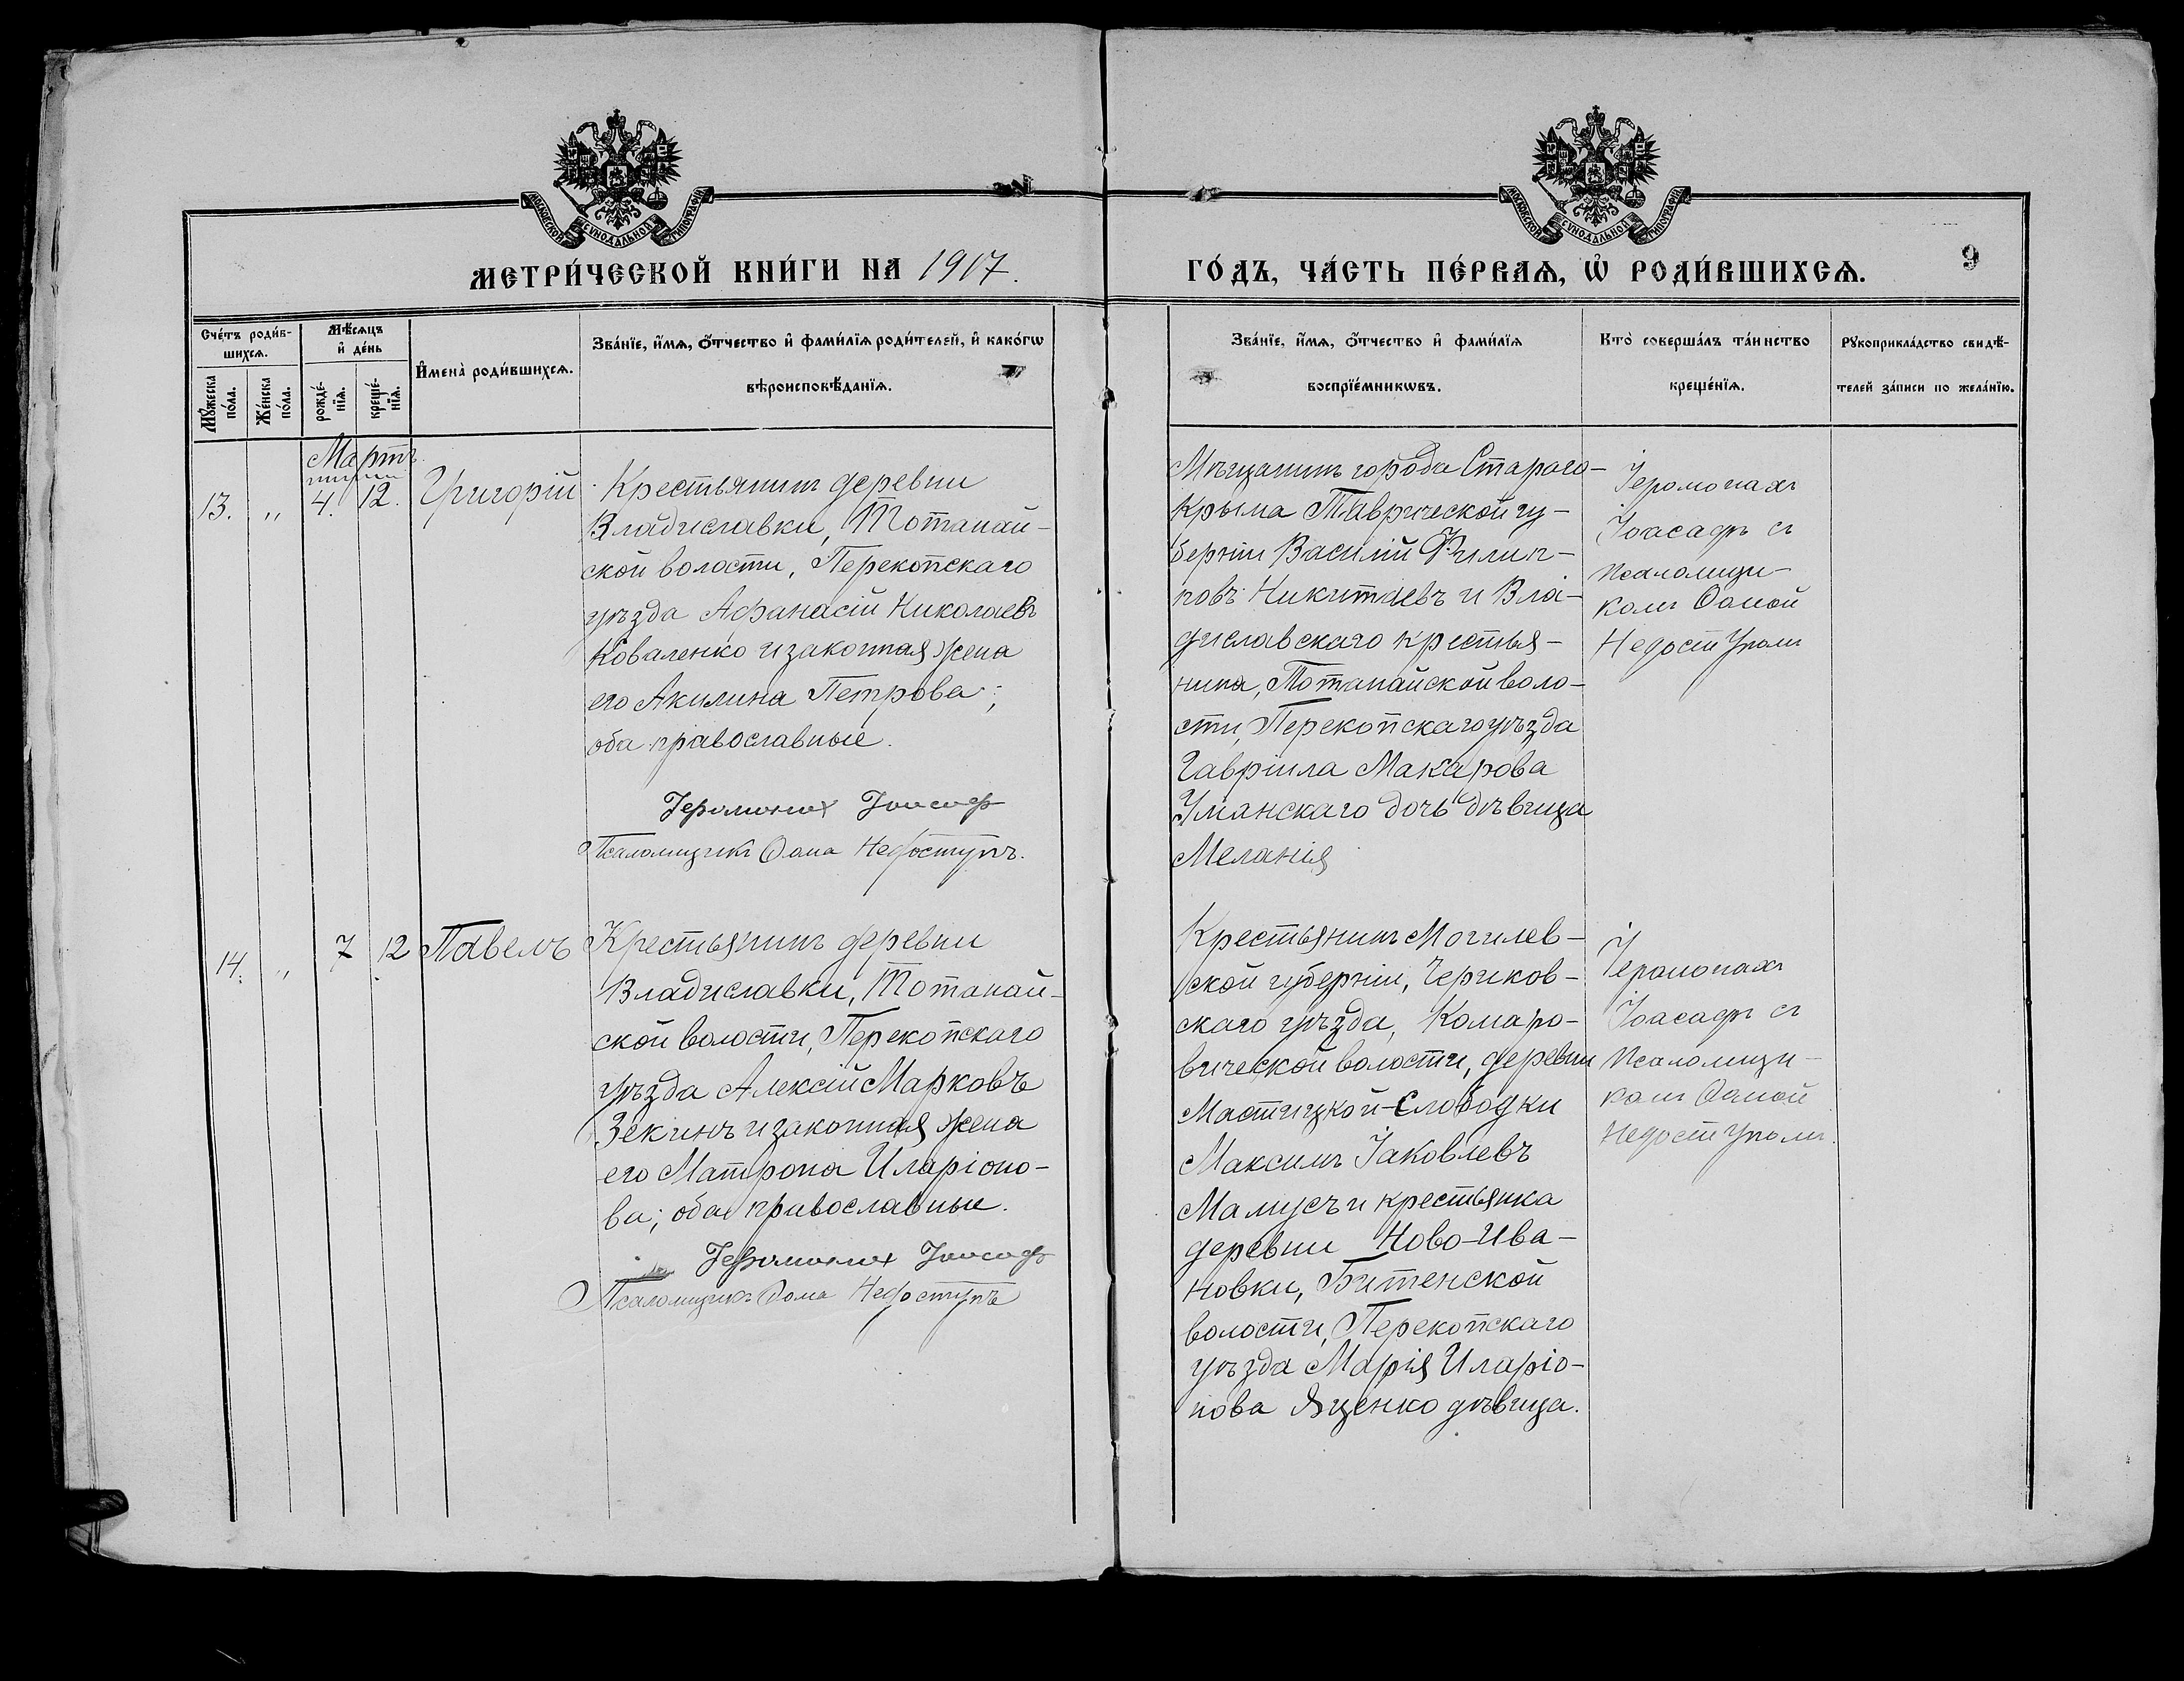 МОСКОВСКОЙ СѴНОДАЛЬНОЙ ТИПОГРАФІИ
МОСКОВСКОЙ СѴНОДАЛЬНОЙ ТИПОГРАФІИ
МЕТРИ́ЧЕСКОЙ КНИ́ГИ НА 1917.
ГО́ДЪ, ЧА́СТЬ ПЕ́РВАѦ, Ѡ҆ РОДИ́ВШИХСѦ.
9
Сче́тъ роди́в-
шихсѧ.
Мꙋ́жеска по́ла.
Же́нска по́ла.
Мѣ́сѧцъ
и҆ де́нь
рожде́-
нїѧ.
креще́-
нїѧ.
И҆мена̀ роди́вшихсѧ.
Зва́нїе, и҆́мѧ, ѻ҆́тчество и҆ фами́лїѧ роди́телей, и҆ како́гѡ
вѣроисповѣ́данїѧ.
Зва́нїе, и҆́мѧ, ѻ҆́тчество и҆ фами́лїѧ
воспрїе́мникѡвъ.
Кто̀ соверша́лъ та́инство
креще́нїѧ.
Рꙋкоприкла́дство свидѣ́-
телей за́писи по жела́нїю.
Мартъ
13. „ 4. 12. Григорій
Крестьянинъ деревни
Владиславки, Тотанай-
ской волости, Перекопскаго
уѣзда Афанасій Николаевъ
Коваленко и законная жена
его Акилина Петрова;
оба православные.
Іеромонах Іоасаф
Псаломщикъ Ѳома Недоступъ.
Мѣщанинъ города Стараго-
Крыма Таврической гу-
берніи Василій Филип-
повъ Никитаевъ и Вла-
диславскаго крестья-
нина, Тотанайской воло-
сти, Перекопскаго уѣзда
Гавріила Макарова
Уманскаго дочь дѣвица
Меланія
Іеромонахъ
Іоасафъ съ
псаломщи-
комъ Ѳомой
Недоступомъ
14. „ 7 12 Павелъ
Крестьянинъ деревни
Владиславки, Тотанай-
ской волости, Перекопскаго
уѣзда Алексій Марковъ
Зекинъ и законная жена
его Матрона Иларіоно-
ва; оба православные.
Іеромонах Іоасаф
Псаломщикъ Ѳома Недоступъ
Крестьянинъ Могилев-
ской губерніи, Чериков-
скаго уѣзда, Комаро-
вической волости, деревни
Мастицкой-Слободки
Максимъ Іаковлевъ
Мамусъ и крестьянка
деревни Ново-Ива-
новки, Битенской
волости, Перекопскаго
уѣзда Марія Иларіо-
нова Яценко дѣвица.
Іеромонахъ
Іоасафъ съ
псаломщи-
комъ Ѳомой
Недоступомъ.